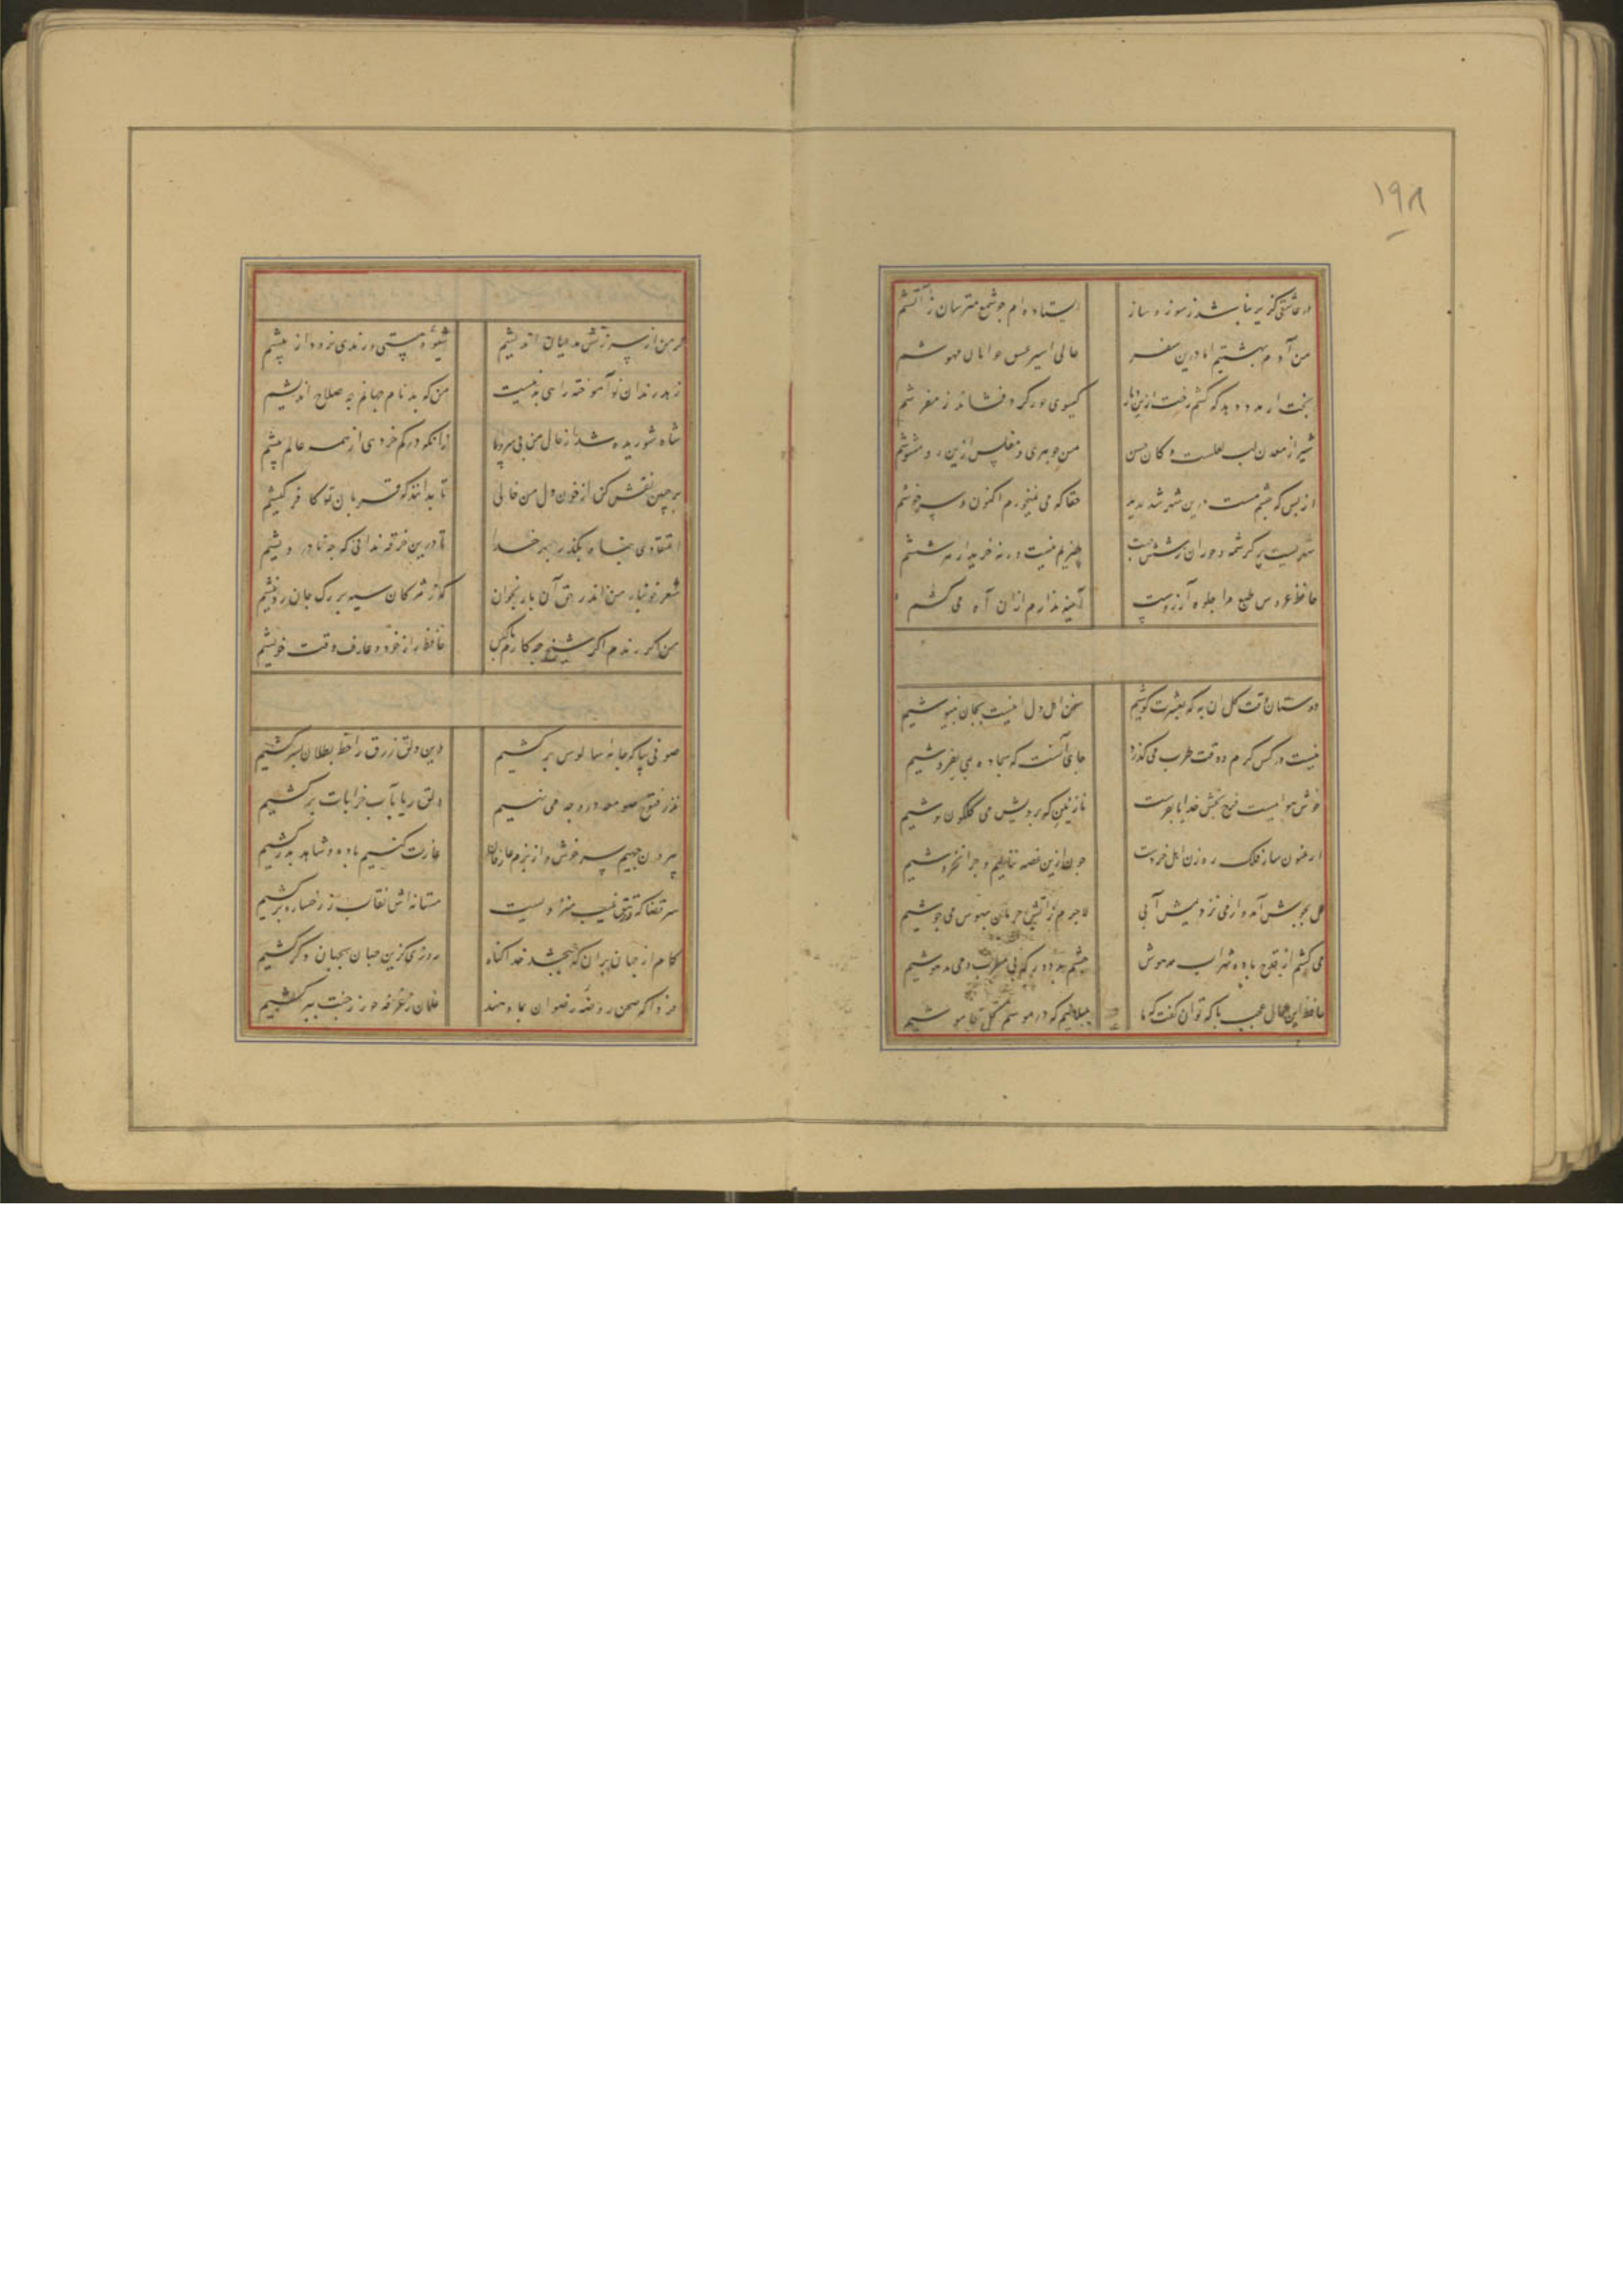 ۱۹۸
در عاشقی گزیر نباشد ز سوز و ساز ایستاده ام چو شمع مترسان ز آتشم
من آدم بهشتیم اما درین سفر حالی اسیر عشق جوانان مهوشم
بخت ار مدد دهد که کشم رخت ازین دیار گیسوی حور گرد فشاند ز مفرشم
شیراز معدن لب لعلست و کان حسن من جوهری مفلس ازین رو مشوشم
از بس که چشم مست درین شهر دیده‌ام حقا که می نمیخورم اکنون و سرخوشم
شهریست پر کرشمه و حوران ز شش جهت چیزیم نیست ورنه خریدار هر ششم
حافظ عروس طبع مرا جلوه آرزوست آینه ندارم ازان آه می کشم
دوستان وقت گل آن به که بعشرت کوشیم سخن اهل دل اینست بجان بنیوشیم
نیست در کس کرم و وقت طرب می گذرد چاره آنست که سجاده بمی بفروشیم
خوش هواییست فرح بخش خدایا بفرست نازنینی که برویش می گلگون نوشیم
ارغنون ساز فلک رهزن اهل خردست چون ازین غصه ننالیم و چرا نخروشیم
گل بجوش آمد و از می نزدیمش آبی لاجرم ز آتش حرمان و هوس می جوشیم
می کشیم از قدح باده شراب موهوم چشم بد دور که بی مطرب و می مدهوشیم
حافظ این حال عجب با که توان گفت که ما بلبلانیم که در موسم گل خاموشیم
گر من از سرزنش مدعیان اندیشم شیوه مستی و رندی نرود از پیشم
زهد رندان نوآموخته راهی بدهیست من که بدنام جهانم چه صلاح اندیشم
شاه شوریده سران خوان من بی سر و پا زانکه در کم خردی از همه عالم بیشم
بر جبین نقش کن از خون دل من خالی تا بدانند که قربان تو کافر کیشم
اعتقادی بنما و بگذر بهر خدا تا درین خرقه ندانی که چه نادرویشم
شعر خونبار من ای باد بدان یار بخوان که ز مژگان سیه بر رگ جان زد نیشم
من اگر رندم اگر شیخ چه کارم با کس حافظ راز خود و عارف وقت خویشم
صوفی بیا که جامه سالوس بر کشیم وین دلق زرق را خط بطلان بسر کشیم
نذر و فتوح صومعه در وجه می نهیم دلق ریا بآب خرابات بر کشیم
بیرون جهیم سرخوش و از بزم عارفان غارت کنیم باده و شاهد ببر کشیم
سر قضا که در تتق غیب منزویست مستانه اش نقاب ز رخسار بر کشیم
کام از جهان بران که ببخشد خدا گناه روزی که زین جهان بجهان دگر کشیم
فردا که صحن روضه رضوان بما دهند غلمان ز غرفه حور ز جنت ببر کشیم